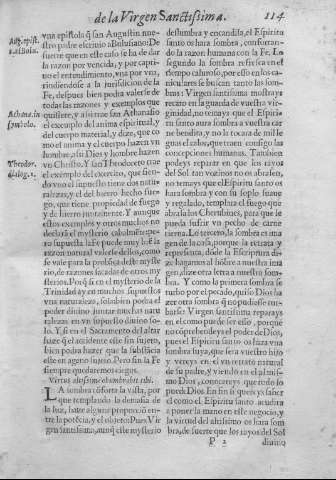 de la Virgen Sanctissima. 114
vna epistola q̃ san Augustin nues-
tro padre escriuio a Bolusiano: De
suerte que en este caso se ha de dar
la razon por vencida, y por capti-
uo el entendimiento, vna por vna,
rindiendose a la jurisdicion de la
Fe, despues bien podra valerse de
todas las razones y exemplos que
quisiere, y assi trae san Athanasio
el exemplo del anima espiritual, y
del cuerpo material, y dize, que co
mo el anima y el cuerpo hazen vn
hombre, assi Dios y hombre hazen
vn Christo. Y san Theodoreto trae
el exemplo del exercito, que sien-
do vno el supuesto tiene dos natu
ralezas, y el del hierro hecho fue-
go, que tiene propiedad de fuego
y de hierro juntamente. Y aunque
estos exemplos y otros muchos no
declarã el mysterio cabalmẽte, pe-
ro supuesta la Fe puede muy biẽ la
razon natural valerse dellos, como
se vale para la prouãça deste myste
rio, de razones sacadas de otros my
sterios. Porq̃ si en el mysterio de la
Trinidad ay en muchos supuestos
vna naturaleza, tambien podra el
poder diuino juntar muchas natu
ralezas en vn supuesto diuino so-
lo. Y si en el Sacramento del altar
haze q̃ el accidente este sin sujeto,
bien podra hazer que la substãcia
este en ageno sujeto. Pero sin la Fe
siempre quedaremos ciegos.
Virtus altissimi obumbrabit tibi.
LA sombra cõforta la vista, por
que templando la demasia de
la luz, haze alguna proporciõ en-
tre la potẽcia, y el objeto: Pues Vir
gen santissima, aunq̃ este mysterio
Aug. epist.
Athana. in
symbolo.
Theodor.
dialog. 2.
deslumbra y encandila, el Espiritu
santo os hara sombra, confortan-
do la razon humana con la Fe. Lo
segundo la sombra refresca en el
tiempo caluroso, por esso en los ca
niculares se buscan tanto las som-
bras: Virgen santissima mostrays
recato en la guarda de vuestra vir-
ginidad, no temays que el Espiri-
tu santo aura sombra a vuestra car
ne bendita, y no la tocara de mil le
guas el calor, que traen consigo las
concepciones humanas. Tambien
podeys reparar en que los rayos
del Sol tan vezinos no os abrasen,
no temays que el Espiritu santo os
hara sombra, y con su soplo suaue
y regalado, templara el fuego que
abrasa los Cherubines, para que le
pueda sufrir vn pecho de carne
tierna. Lo tercero, la sombra es ima
gen de la cosa, porque la retrata y
representa, dõde la Escriptura di-
ze hagamos al hõbre a nuestra ima
gen, dize otra letra a nuestra som-
bra. Y como la primera sombra se
borro por el pecado, quiso Dios ha
zer otra sombra q̃ no pudiesse bor-
rarse: Virgen santissima reparays
en el como puede ser esso, porque
no cõprehendeys el poder de Dios,
pues el Espiritu santo os hara vna
sombra suya, que sera vuestro hijo
y vereys en el vn retrato natural
de su padre, y viendo en el al mis-
mo Dios, conocereys que todo lo
puede Dios. En fin si quereys saber
el como el Espiritu santo acudira
a poner la mano en este negocio, y
la virtud del altissimo os hara som
bra, de suerte que los rayos del Sol
P 2 diuino